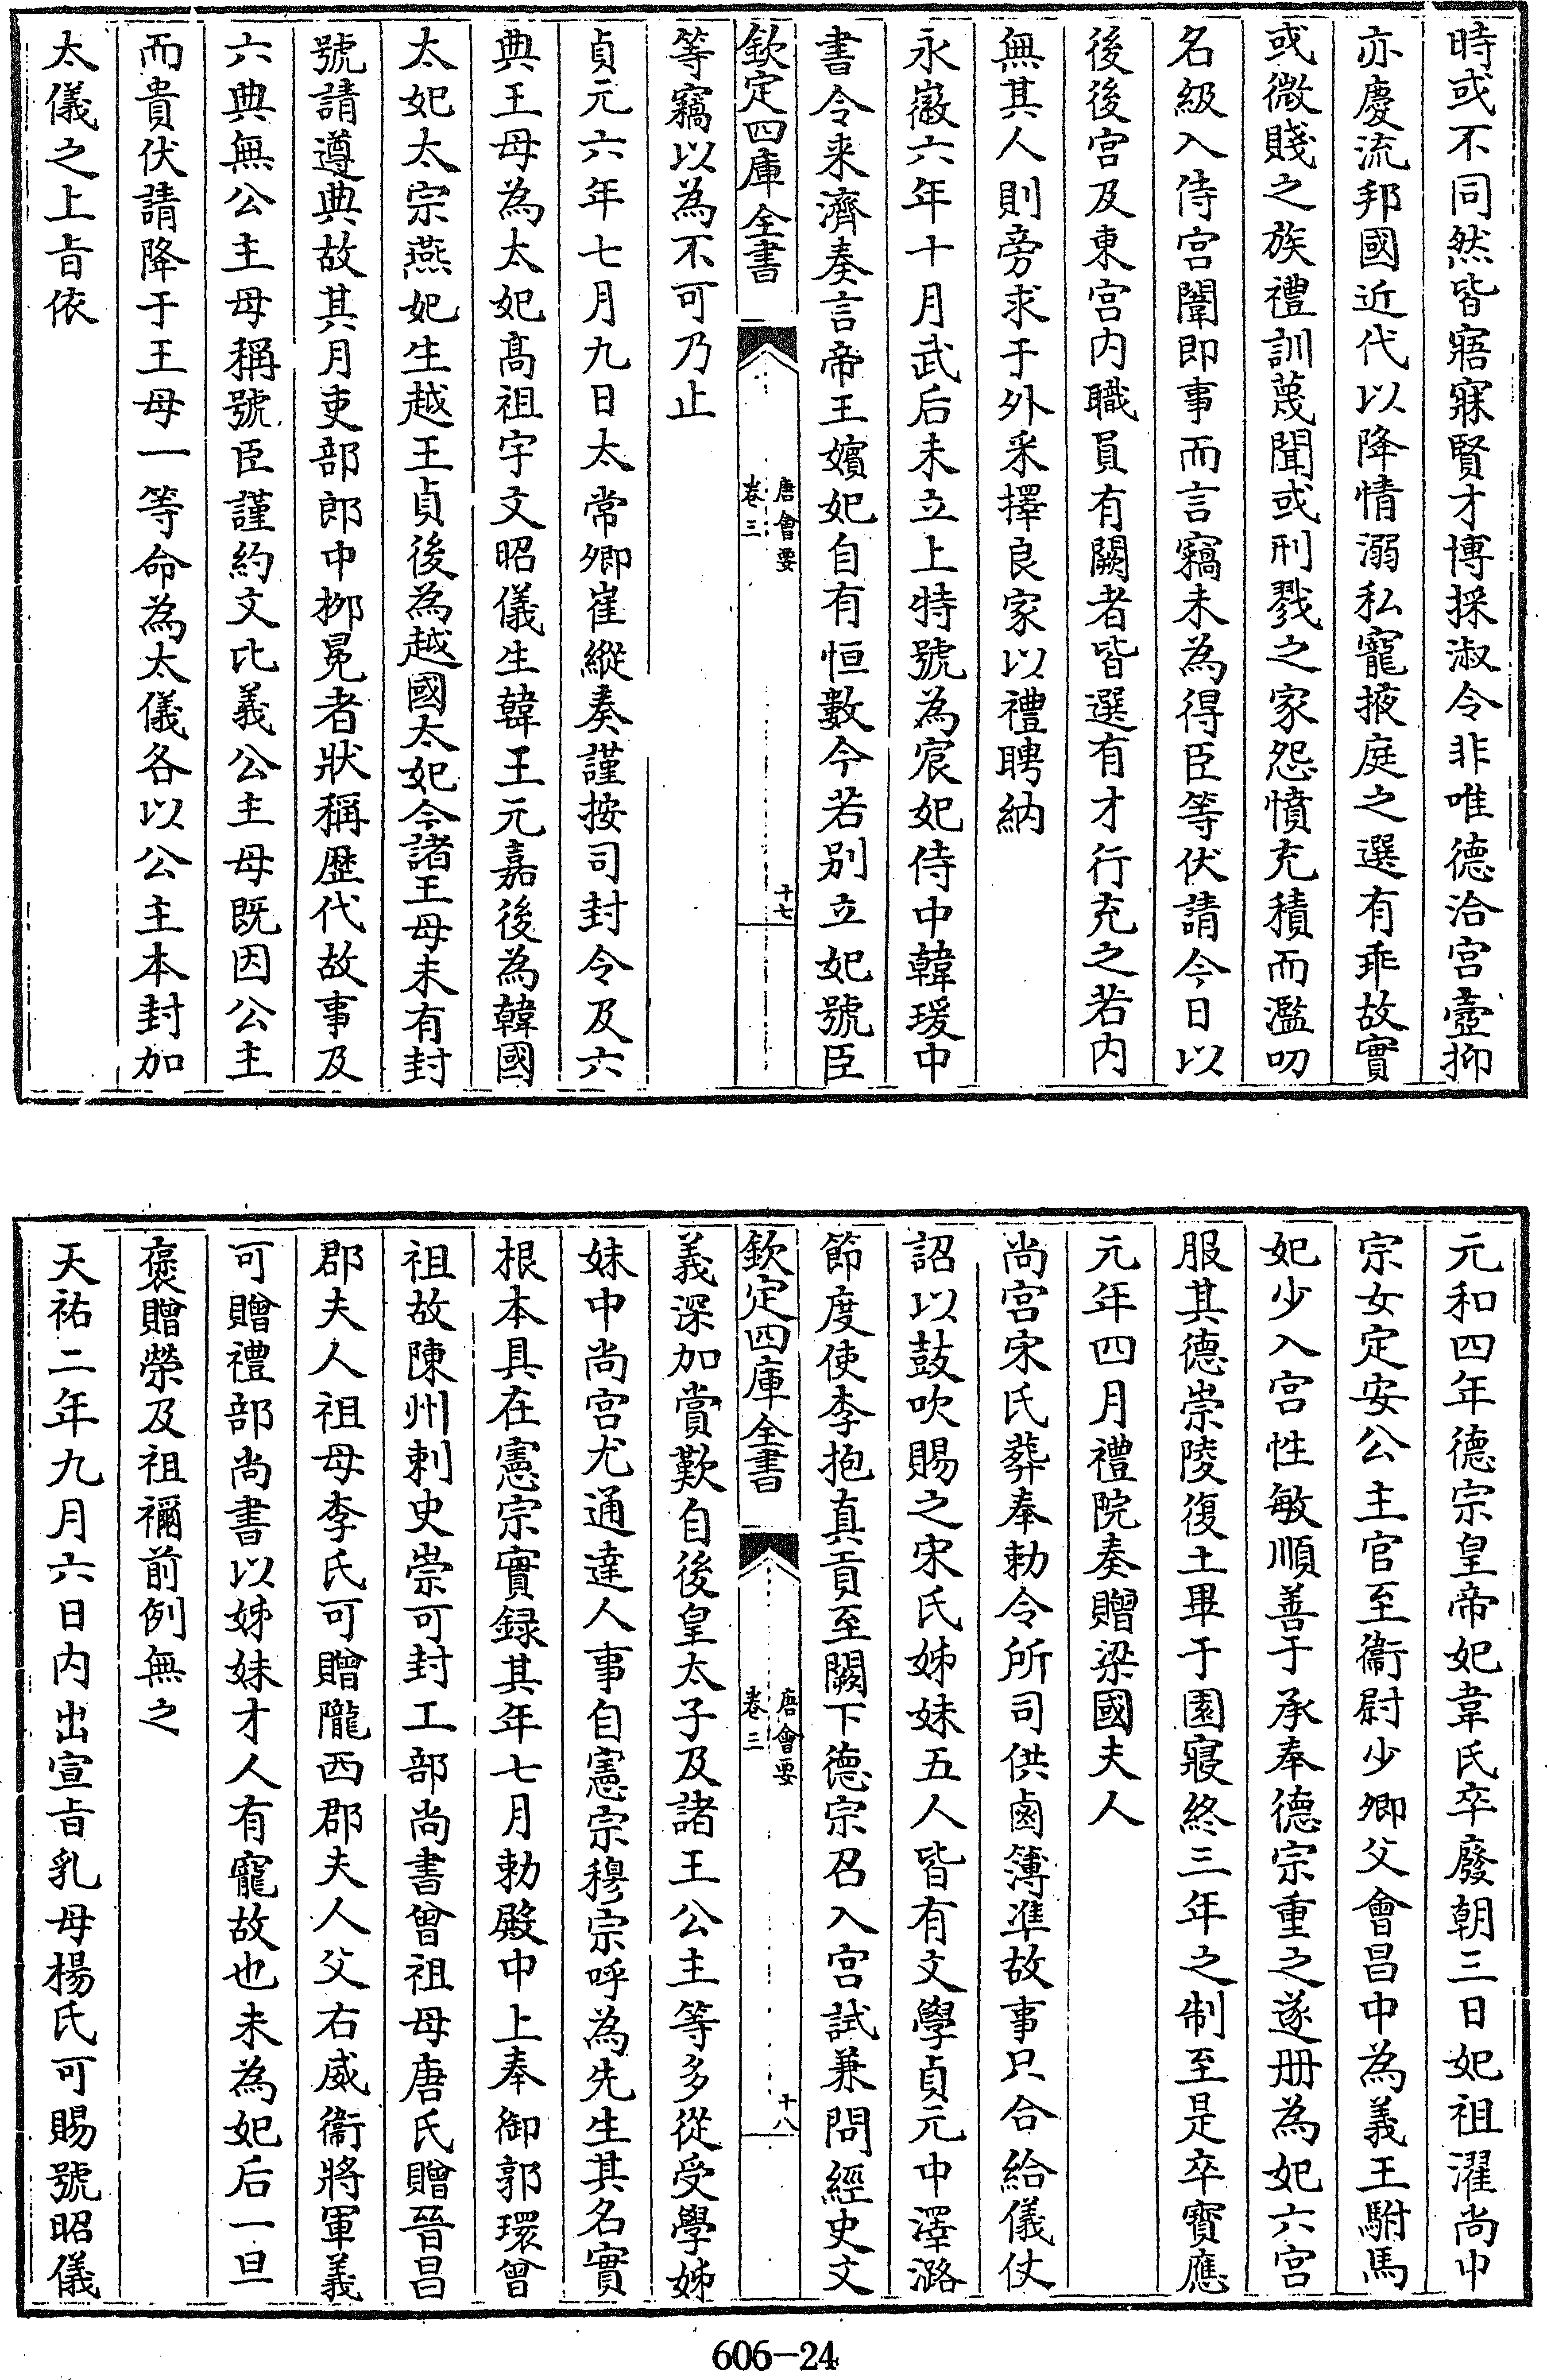 時或不同然皆寤寐賢才博採淑令非唯德洽宮壼抑
亦慶流邦國近代以降情溺私寵掖庭之選有乖故實
或微賤之族禮訓蔑聞或刑戮之家怨憤充積而濫叨
名級入侍宫闈即事而言竊未為得臣等伏請今日以
後後宫及東宫内職員有闕者皆選有才行充之若内
無其人則旁求于外采擇良家以禮聘納
永徽六年十月武后未立上特號為宸妃侍中韓瑗中
書令来濟奏言帝王嬪妃自有恒數今若别立妃號臣
欽定四庫全書
唐會要
卷三
十七
等竊以為不可乃止
貞元六年七月九日太常卿崔縱奏謹按司封令及六
典王母為太妃髙祖宇文昭儀生韓王元嘉後為韓國
太妃太宗燕妃生越王貞後為越國太妃今諸王母未有封
號請遵典故其月吏部郎中栁冕者狀稱歴代故事及
六典無公主母稱號臣謹約文比義公主母既因公主
而貴伏請降于王母一等命為太儀各以公主本封加
太儀之上㫖依
元和四年德宗皇帝妃韋氏卒廢朝三日妃祖濯尚中
宗女定安公主官至衞尉少卿父會昌中為義王駙馬
妃少入宫性敏順善于承奉德宗重之遂册為妃六宫
服其德崇陵復土畢于園寢終三年之制至是卒寳應
元年四月禮院奏贈梁國夫人
尚宫宋氏葬奉勅令所司供鹵簿凖故事只合給儀仗
詔以鼓吹賜之宋氏姊妹五人皆有文學貞元中澤潞
節度使李抱真貢至闕下德宗召入宫試兼問經史文
欽定四庫全書
唐會要
卷三
十八
義深加賞歎自後皇太子及諸王公主等多從受學姊
妹中尚宫尤通達人事自憲宗穆宗呼為先生其名實
根本具在憲宗實録其年七月勅殿中上奉御郭環曾
祖故陳州刺史崇可封工部尚書曾祖母唐氏贈晉昌
郡夫人祖母李氏可贈隴西郡夫人父右威衞將軍義
可贈禮部尚書以姊妹才人有寵故也未為妃后一旦
褒贈榮及祖禰前例無之
天祐二年九月六日内出宣㫖乳母楊氏可賜號昭儀
606-24